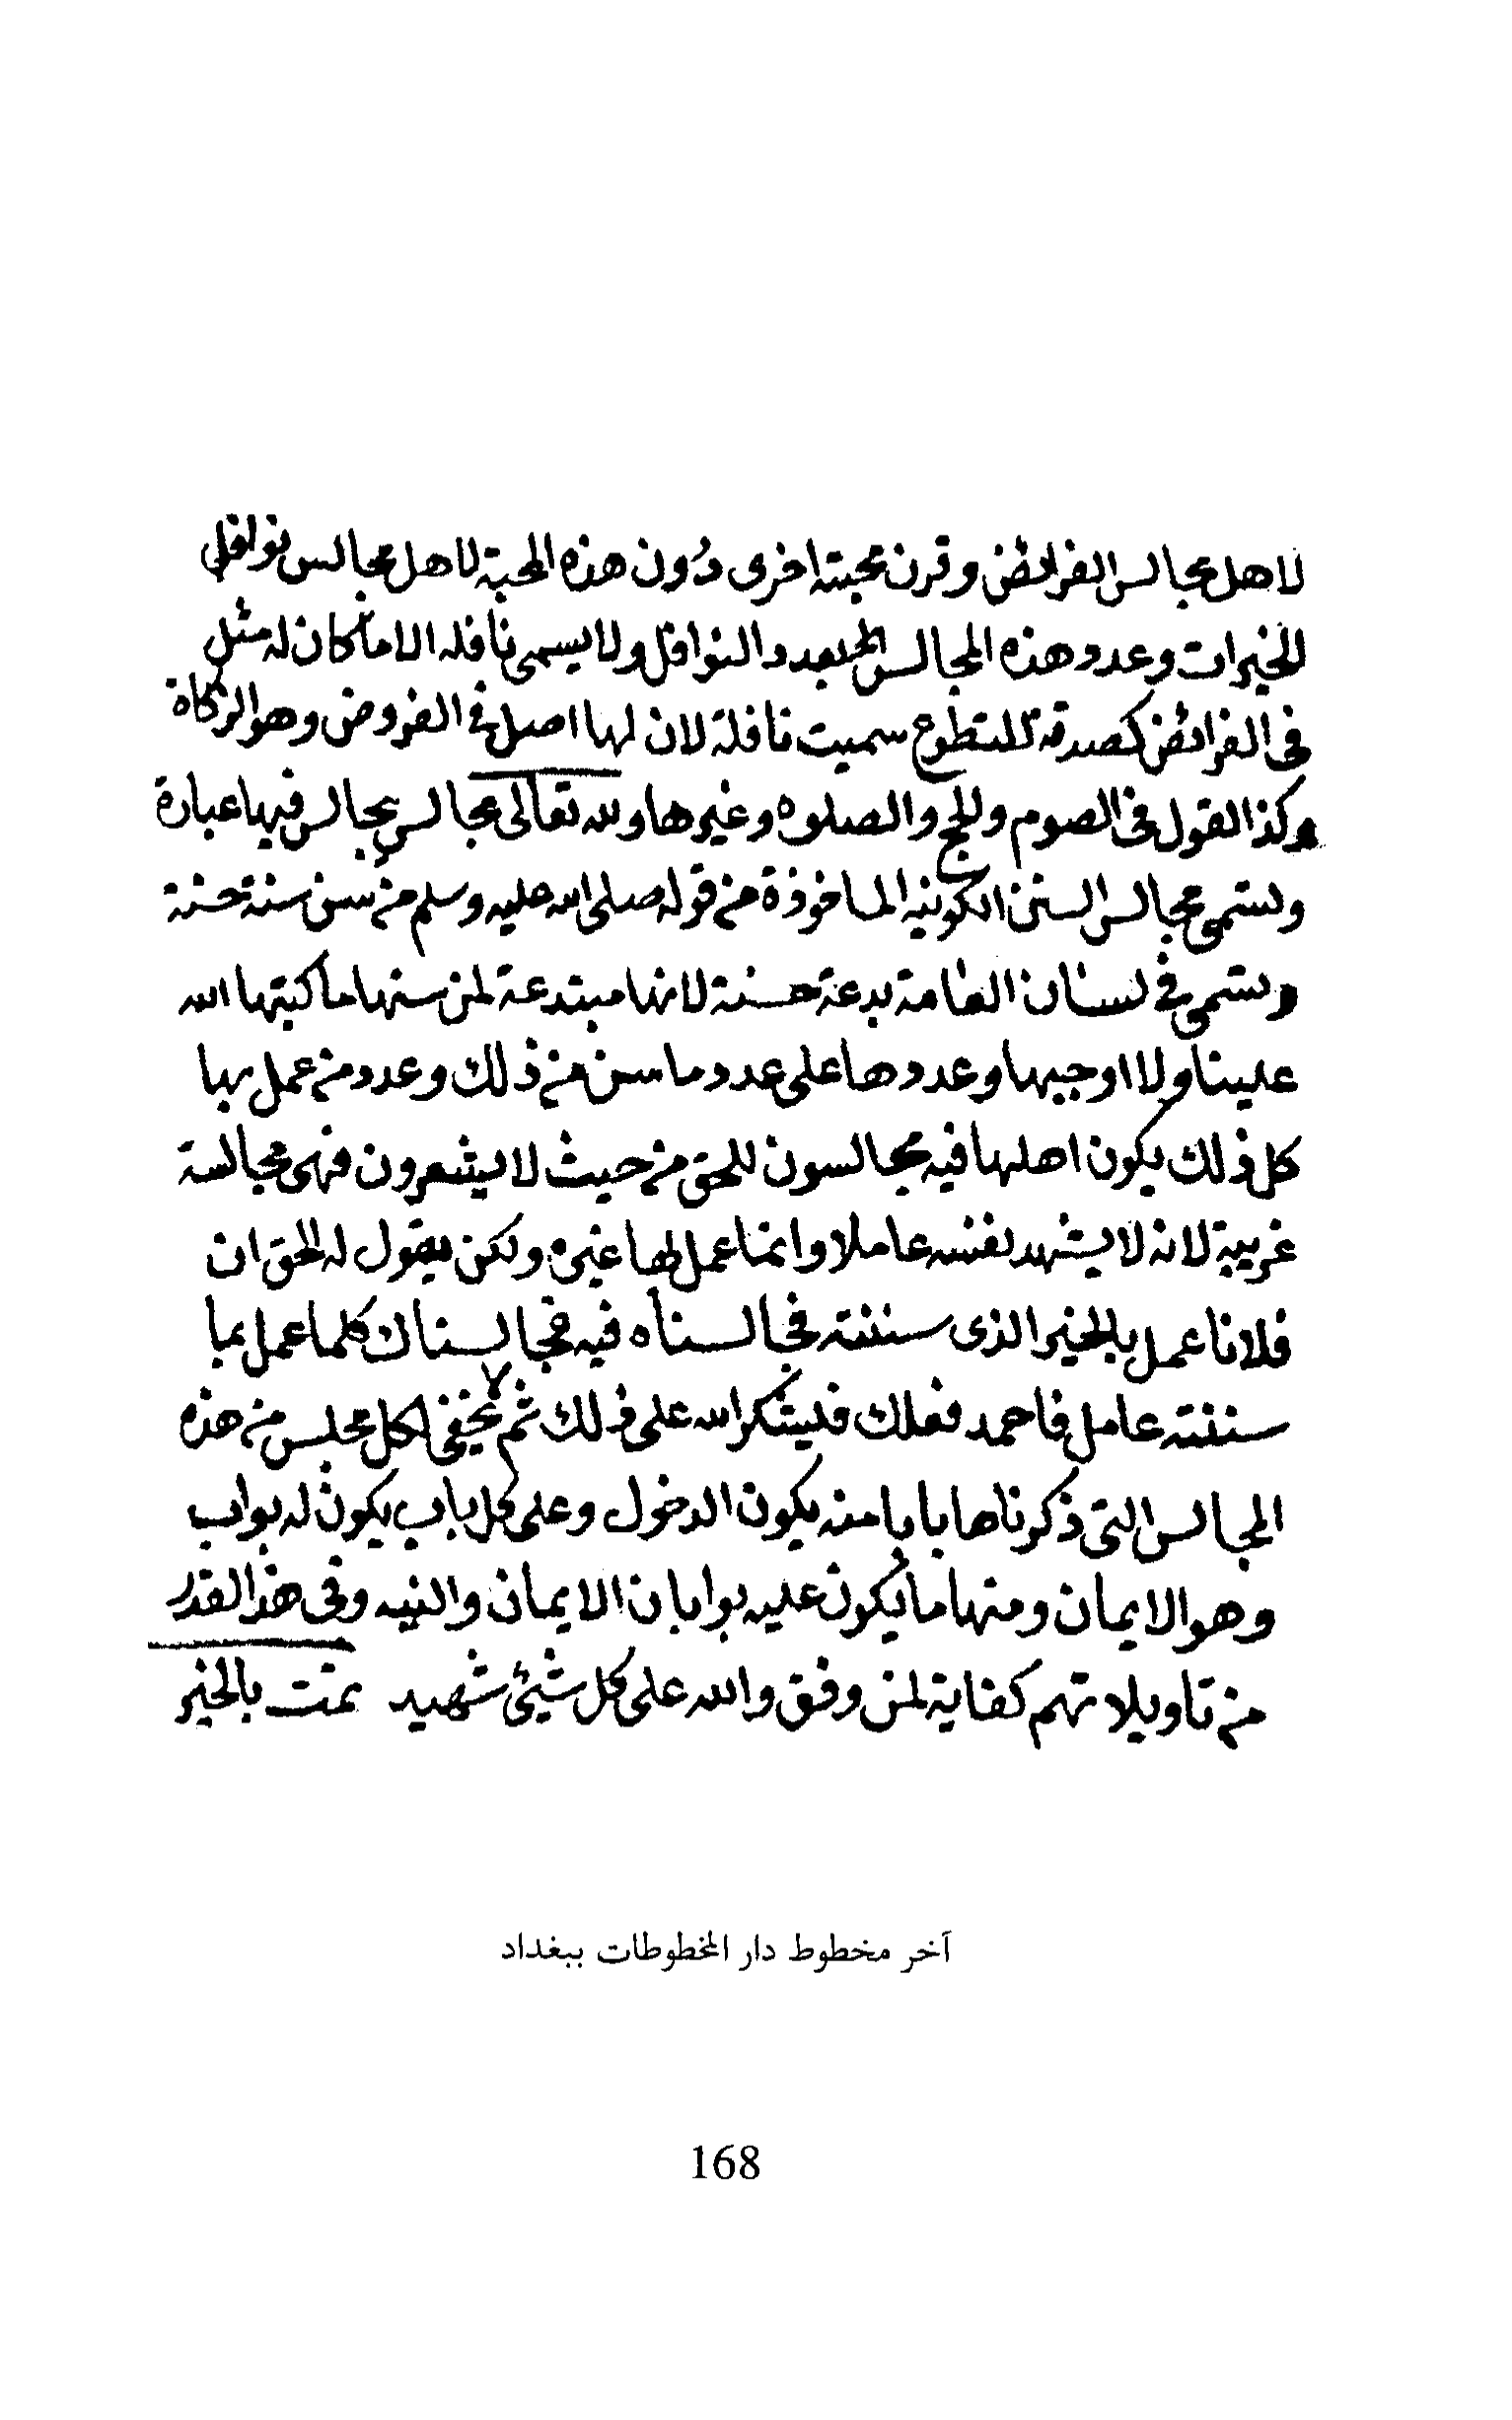 لاهل مجالس الفرائض وقرن محبته اخرى دون هذه المحبة لاهل مجالس نوافل
الخيرات وعدد هذه المجالس بعدد النوافل ولا يسمى نافله الا ما كان له مثل
فى الفرائض كصدقة التطوع سميت نافلة لان لها اصل فى الفروض وهو الزكاة
وكذا القول فى الصوم والحج والصلوه وغيرها ولله تعالى مجالس يجالس فيها عباده
وتسمى مجالس السنن الكونيه الماخوذة من قوله صلى الله عليه وسلم من سن سنة حسنة
وتسمى فى لسان العامة بدعة حسنة لانها مبتدعة لمن سنها ما كتبها الله
علينا ولا اوجبها وعددها على عدد ما سن من ذلك وعدد من عمل بها
كل ذلك يكون اهلها فيه مجالسون للحق من حيث لا يشعرون فهى مجالسة
غريبة لانه لا يشهد نفسه عاملا وانما عمل بها غيره ولكن يقول له الحق ان
فلانا عمل بالخير الذى سننته فجالسناه فيه فجالسناك كلما عمل بما
سننته عامل فاحمد فعلك فليشكر الله على ذلك ثم لا يخفى لكل مجلس من هذه
المجالس التى ذكرناها بابا منه يكون الدخول وعلى كل باب يكون له بواب
وهو الايمان ومنها ما يكون عليه بوابان الايمان والنيه وفى هذا القدر
من تاويلاتهم كفاية لمن وفق والله على كل شيئ شهيد تمت بالخير
آخر مخطوط دار المخطوطات ببغداد
168